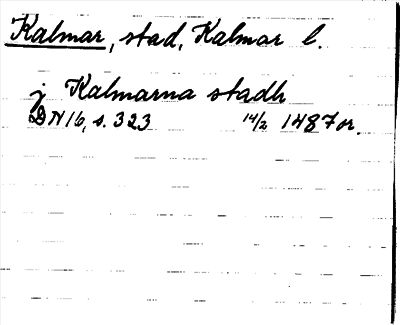 Kalmar, stad, Kalmar l.
j Kalmarna stadh
DN 16, s. 323 14/2 1487 or.